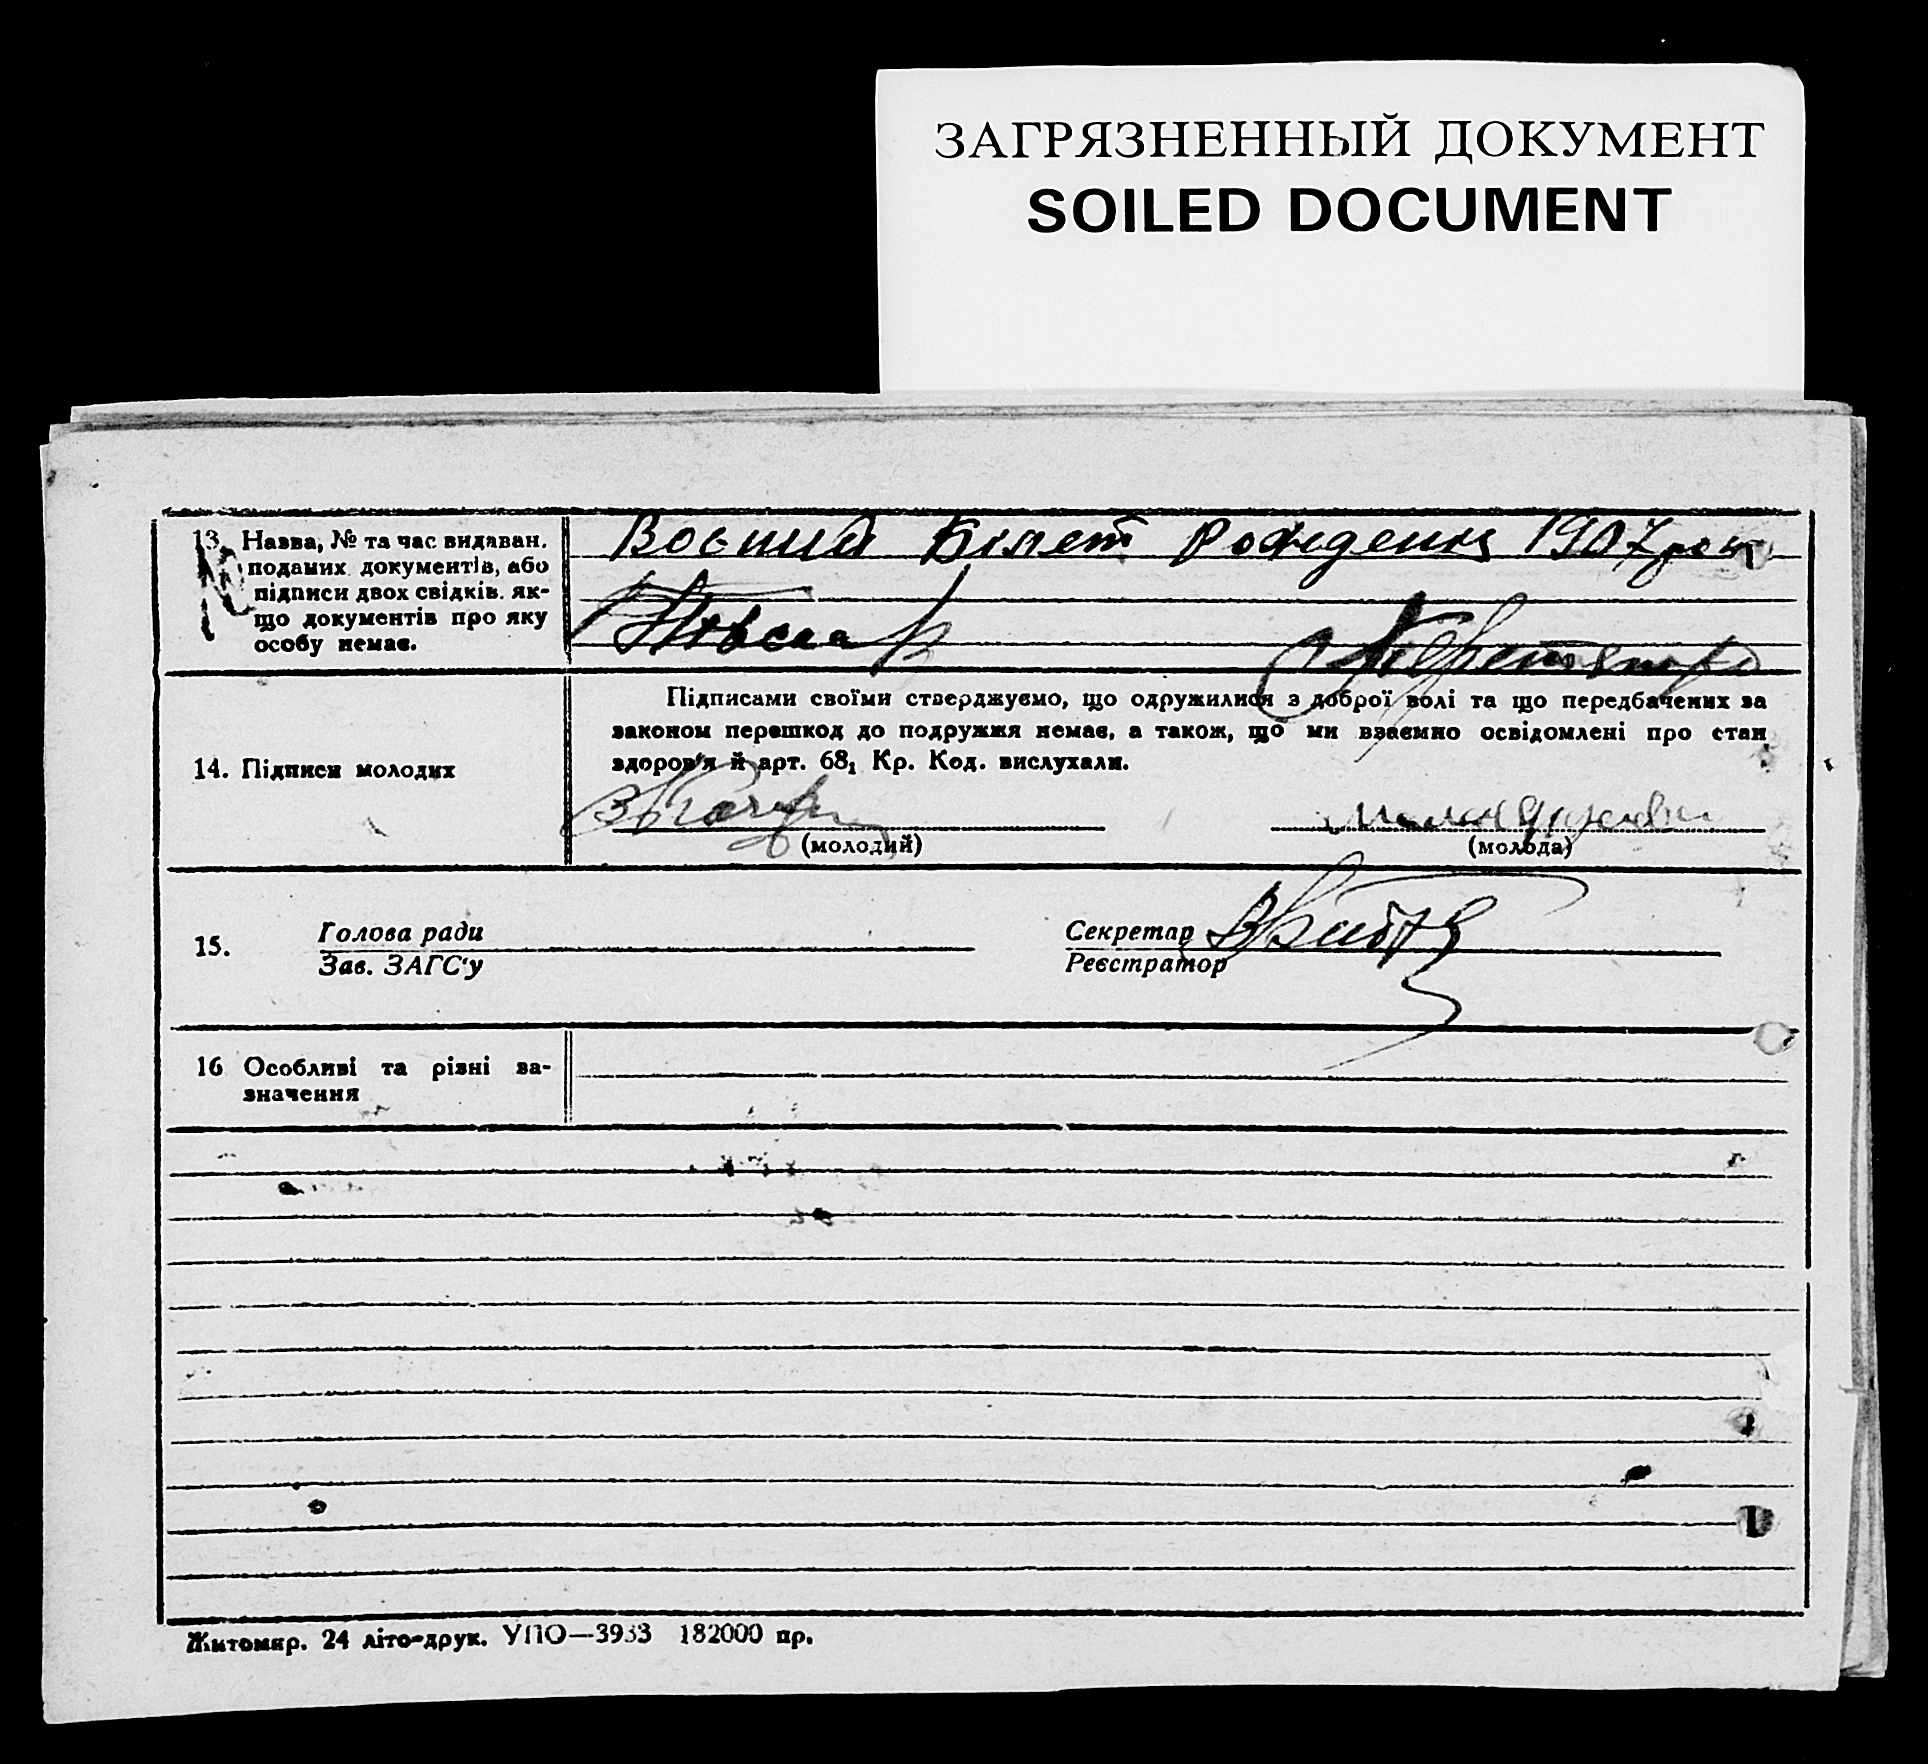 ЗАГРЯЗНЕННЫЙ ДОКУМЕНТ
SOILED DOCUMENT
13. Назва, № та час видаван.
поданих документів, або
підписи двох свідків, як-
що документів про яку
особу немає.
Воєний Білет Рождения 1907 року
14. Підписи молодих
Підписами своїми стверджуємо, що одружилися з доброї волі та що передбачених за
законом перешкод до подружжя немає, а також, що ми взаємно освідомлені про стан
здоров'я й арт. 68₁ Кр. Код. вислухали.
(молодий) (молода)
15. Голова ради
Зав. ЗАГС'у
Секретар
Реєстратор
16 Особливі та різні за-
значення
Житомир. 24 літо-друк. УПО—3933 182000 пр.